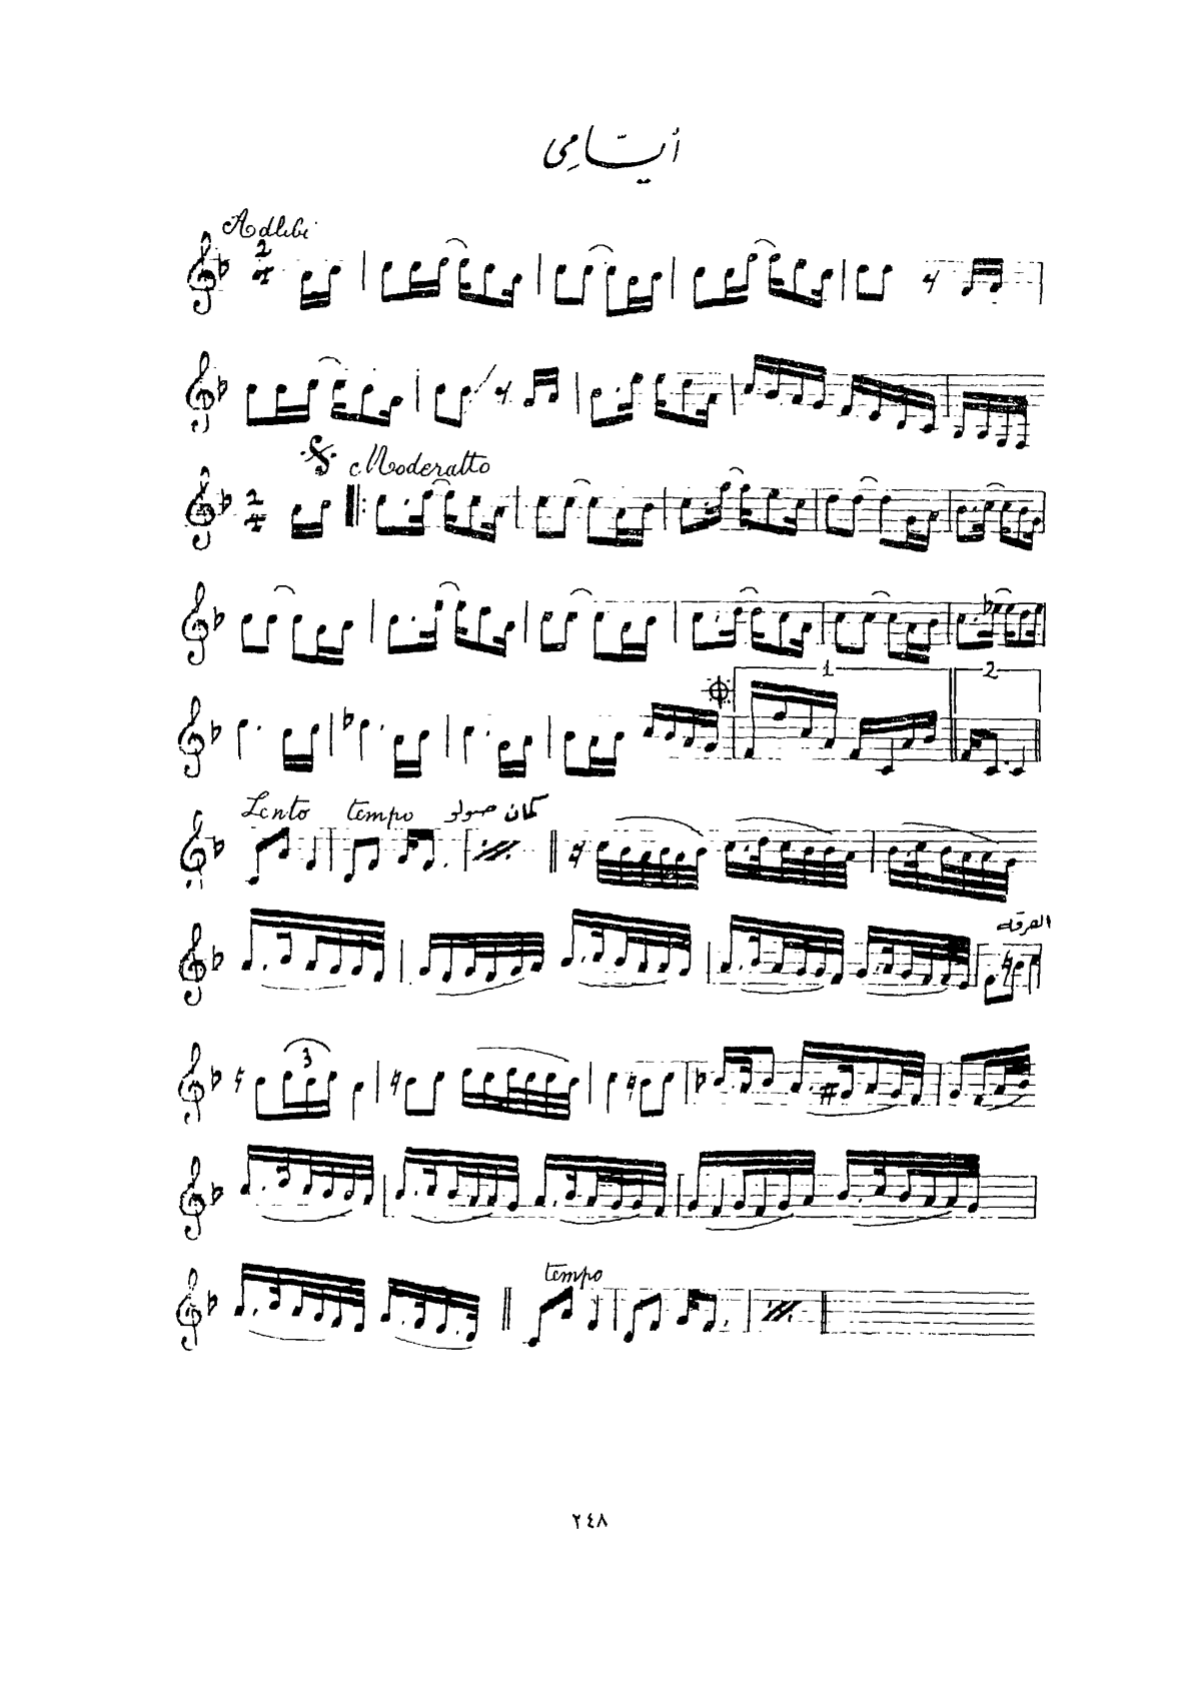 أيّامِي
Adlibi
2
4
Moderatto
2
4
1
2
Lento tempo كمان صولو
الفرقه
3
tempo
٢٤٨